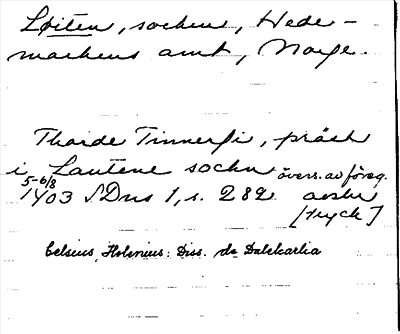 Löiten, socken, Hede-
markens amt, Norge.
Thorde Tinnersi, präst
i Lautene sockn övers. av föreg.
5-6/8
1403 SDns 1, s. 282 avskr
[tryck]
Celsius, Holenius: Diss. de Dalekarlia